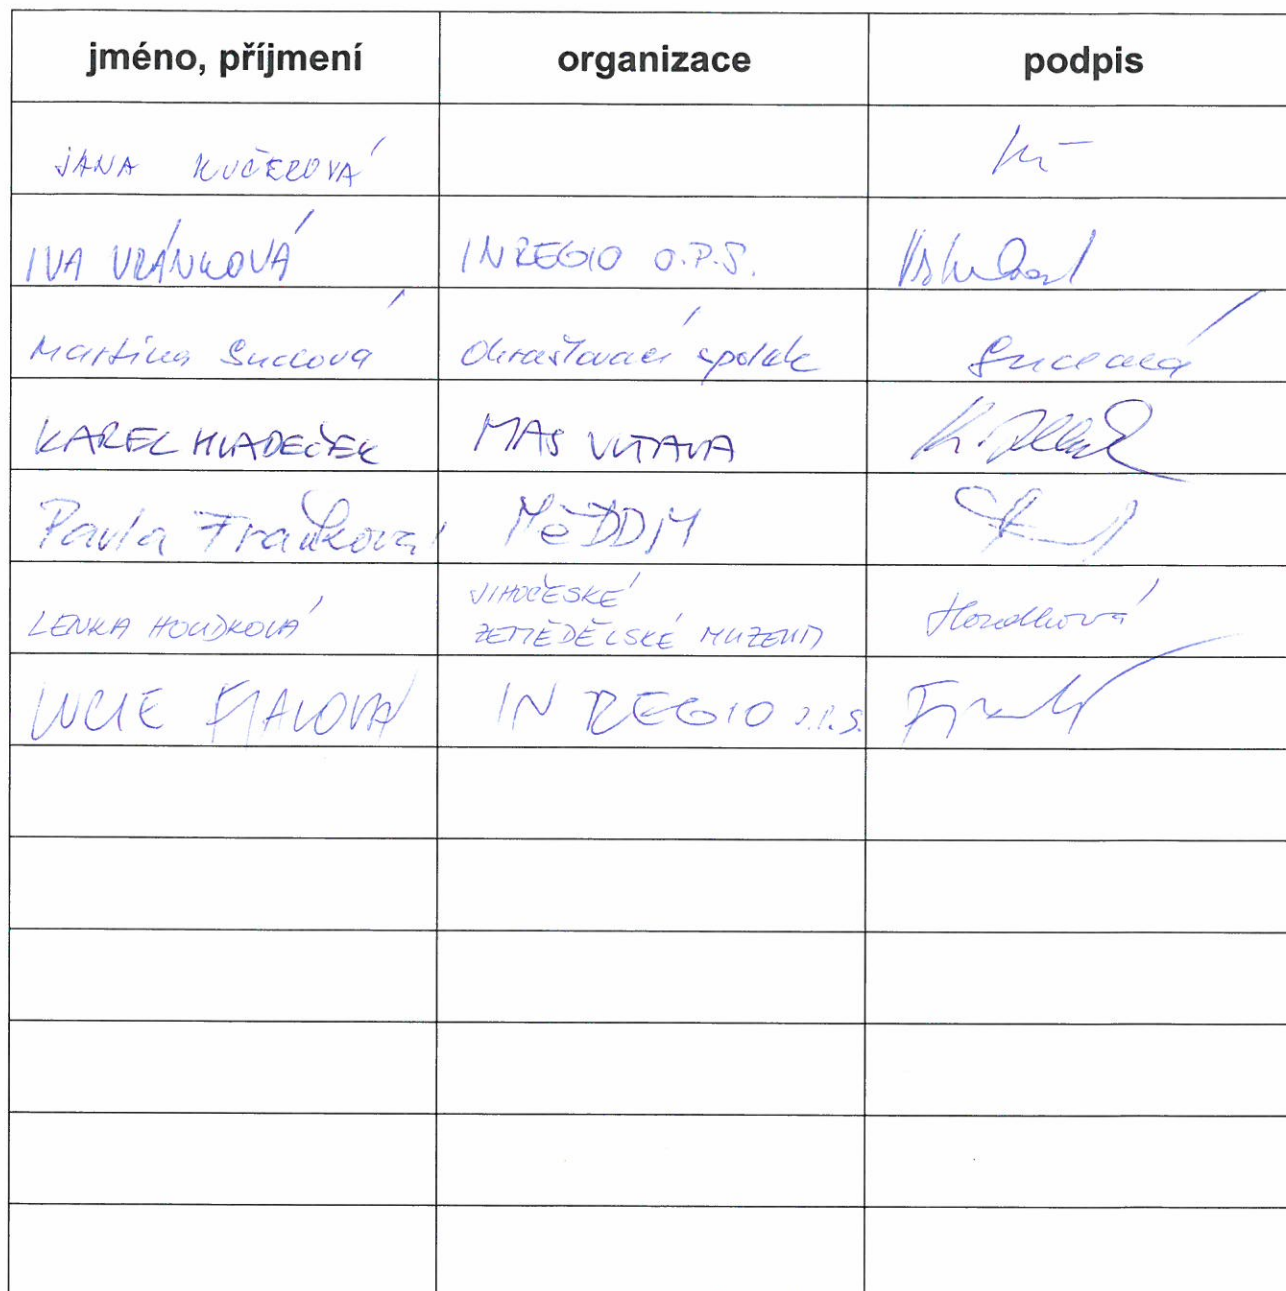 jméno, příjmení organizace podpis
JANA KUČEROVÁ
IVA VRÁNKOVÁ INREGIO O.P.S.
Martina Succová Okrašlovací spolek Succová
KAREL HLADEČEK MAS VLTAVA
Pavla Fraňková MěDDM
LENKA HOUDKOVÁ JIHOČESKÉ
ZEMĚDĚLSKÉ MUZEUM Houdková
LUCIE FJALOVÁ IN REGIO O.P.S.